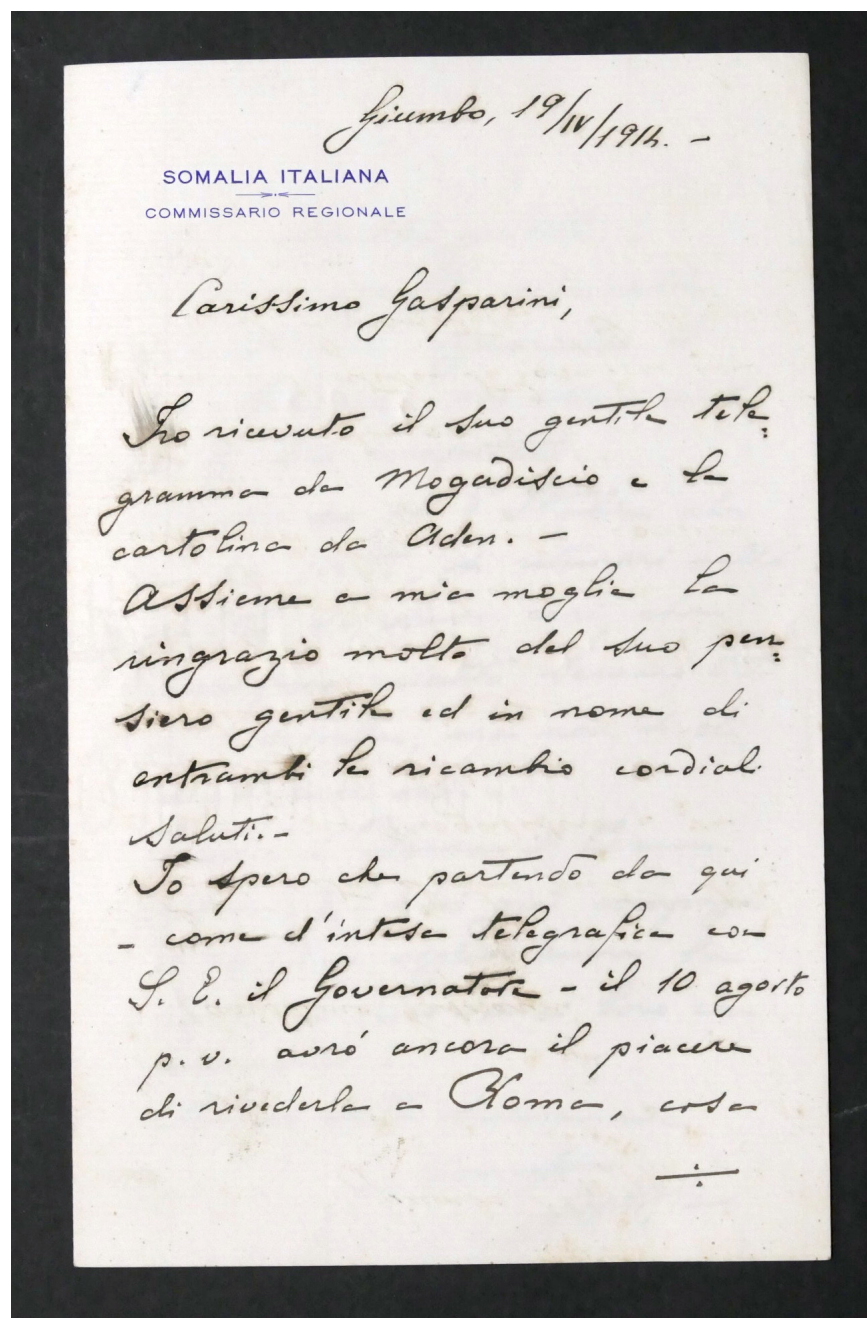 Giumbo, 19/IV/1914. -
SOMALIA ITALIANA
COMMISSARIO REGIONALE
Carissimo Gasparini,
Ho ricevuto il suo gentile tele=
gramma da Mogadiscio e la
cartolina da Aden. -
Assieme a mia moglie La
ringrazio molto del suo pen=
siero gentile ed in nome di
entrambi le ricambio cordiali
saluti. -
Io spero che partendo da qui
- come d'intesa telegrafica con
S. E. il Governatore - il 10 agosto
p. v. avró ancora il piacere
di rivederla a Roma, cosa